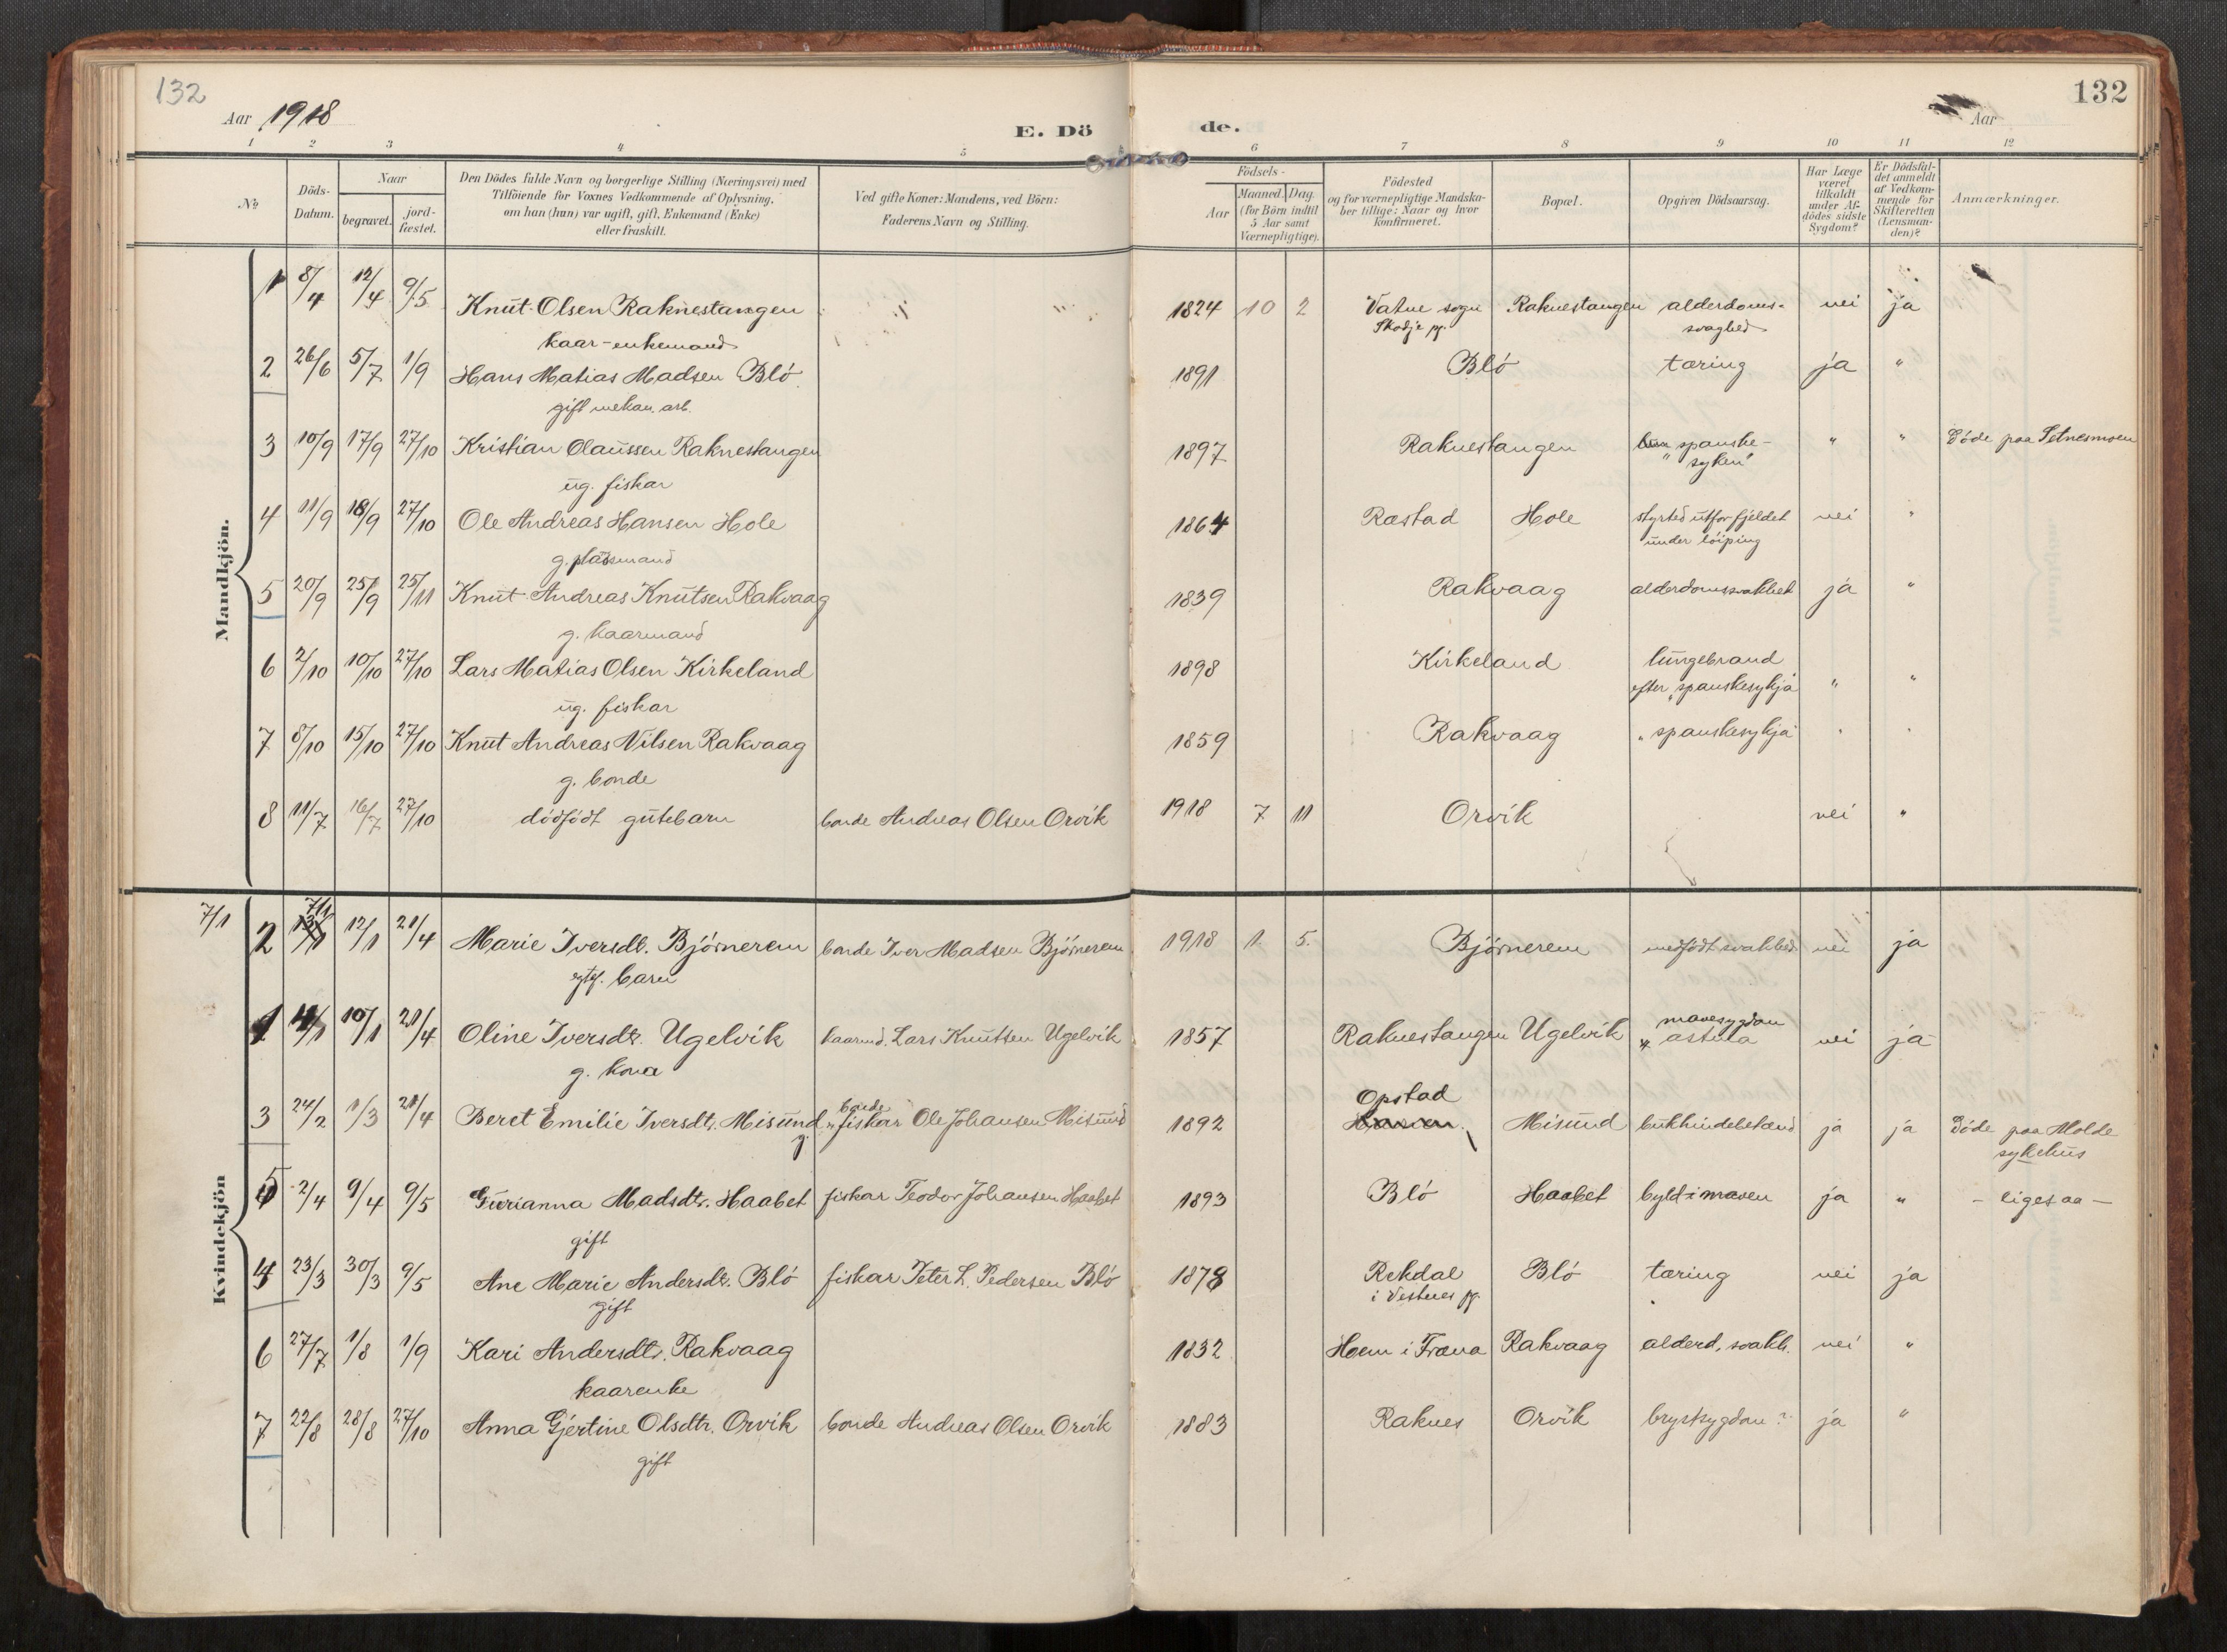 132
Aar 1918
E. Dö de.
Aar
132
1 2 3 4 5 6 7 8 9 10 11 12
No.
Döds-Datum.
Naar
begravet.
jord-fæstet.
Den Dödes fulde Navn og borgerlige Stilling (Næringsvei) med
Tilföiende for Voxnes Vedkommende af Oplysning,
om han (hun) var ugift, gift, Enkemand (Enke)
eller fraskilt.
Ved gifte Koner: Mandens, ved Börn:
Faderens Navn og Stilling.
Födsels-
Aar
Maaned. Dag.
(for Börn indtil
5 Aar samt
Værnepligtige).
Födested
og for værnepligtige Mandska-
ber tillige: Naar og hvor
konfirmeret.
Bopæl.
Opgiven Dödsaarsag.
Har Læge
været
tilkaldt
under Af-
dödes sidste
Sygdom?
Er Dödsfal-
det anmeldt
af Vedkom-
mende for
Skifteretten
(Lensman-
den)?
Anmærkninger.
Mandkjön.
1 8/4 12/4 9/5 Knut Olsen Raknestangen 1824 10 2 Vatne sogn Raknestangen alderdoms- nei ja
kaar-enkemand Skodje pg. svaghed
2 26/6 5/7 1/9 Hans Matias Madsen Blö 1891 Blö tæring ja "
gift mekan. arb.
3 10/9 17/9 27/10 Kristian Olaussen Raknestangen 1897 Raknestangen spanske- " " Döde paa Setnesmoen
ug. fiskar "syken"
4 11/9 18/9 27/10 Ole Andreas Hansen Hole 1864 Ræstad Hole styrted utfor fjeldet nei "
g. plassmand under löiping
5 20/9 25/9 25/11 Knut Andreas Knutsen Rakvaag 1839 Rakvaag alderdomssvakhet ja "
g. kaarmand
6 2/10 10/10 27/10 Lars Matias Olsen Kirkeland 1898 Kirkeland lungebrand
ug. fiskar efter "spanskesykja" " "
7 8/10 15/10 27/10 Knut Andreas Nilsen Rakvaag 1859 Rakvaag "spanskesykja" " "
g. bonde
8 11/7 16/7 27/10 dödfödt gutebarn bonde Andreas Olsen Orvik 1918 7 11 Orvik nei "
Kvindekjön
7/1 2 7/1 12/1 21/4 Marie Iversdt. Björnerem bonde Iver Madsen Björnerem 1918 1. 5. Björnerem medfödt svakhed nei ja
egtef. barn
1 4/1 10/1 21/4 Oline Iversdtr. Ugelvik kaarmd. Lars Knutsen Ugelvik 1857 Raknestangen Ugelvik mavesygdom nei ja
g. kona " astma
3 24/2 1/3 21/4 Beret Emilie Iversdtr. Misund g. bonde "fiskar Ole Johansen Misund 1892 Opstad Misund bukhindebetænd ja ja Döde paa Molde
sykehus
5 2/4 9/4 9/5 Gurianna Madsdtr. Haabet fiskar Teodor Johansen Haabet 1893 Blö Haabet byld i maven ja " - ligesaa -
gift
4 23/3 30/3 9/5 Ane Marie Andersdtr. Blö fiskar Peter L. Pedersen Blö 1878 Rekdal Blö tæring nei ja
gift i Vestnes pg.
6 27/7 1/8 1/9 Kari Andersdtr. Rakvaag 1832 Hoem i Fræna Rakvaag alderd. svakh. nei "
kaarenke
7 22/8 28/8 27/10 Anna Gjertine Olsdtr. Orvik bonde Andreas Olsen Orvik 1883 Raknes Orvik brystsygdom? ja "
gift